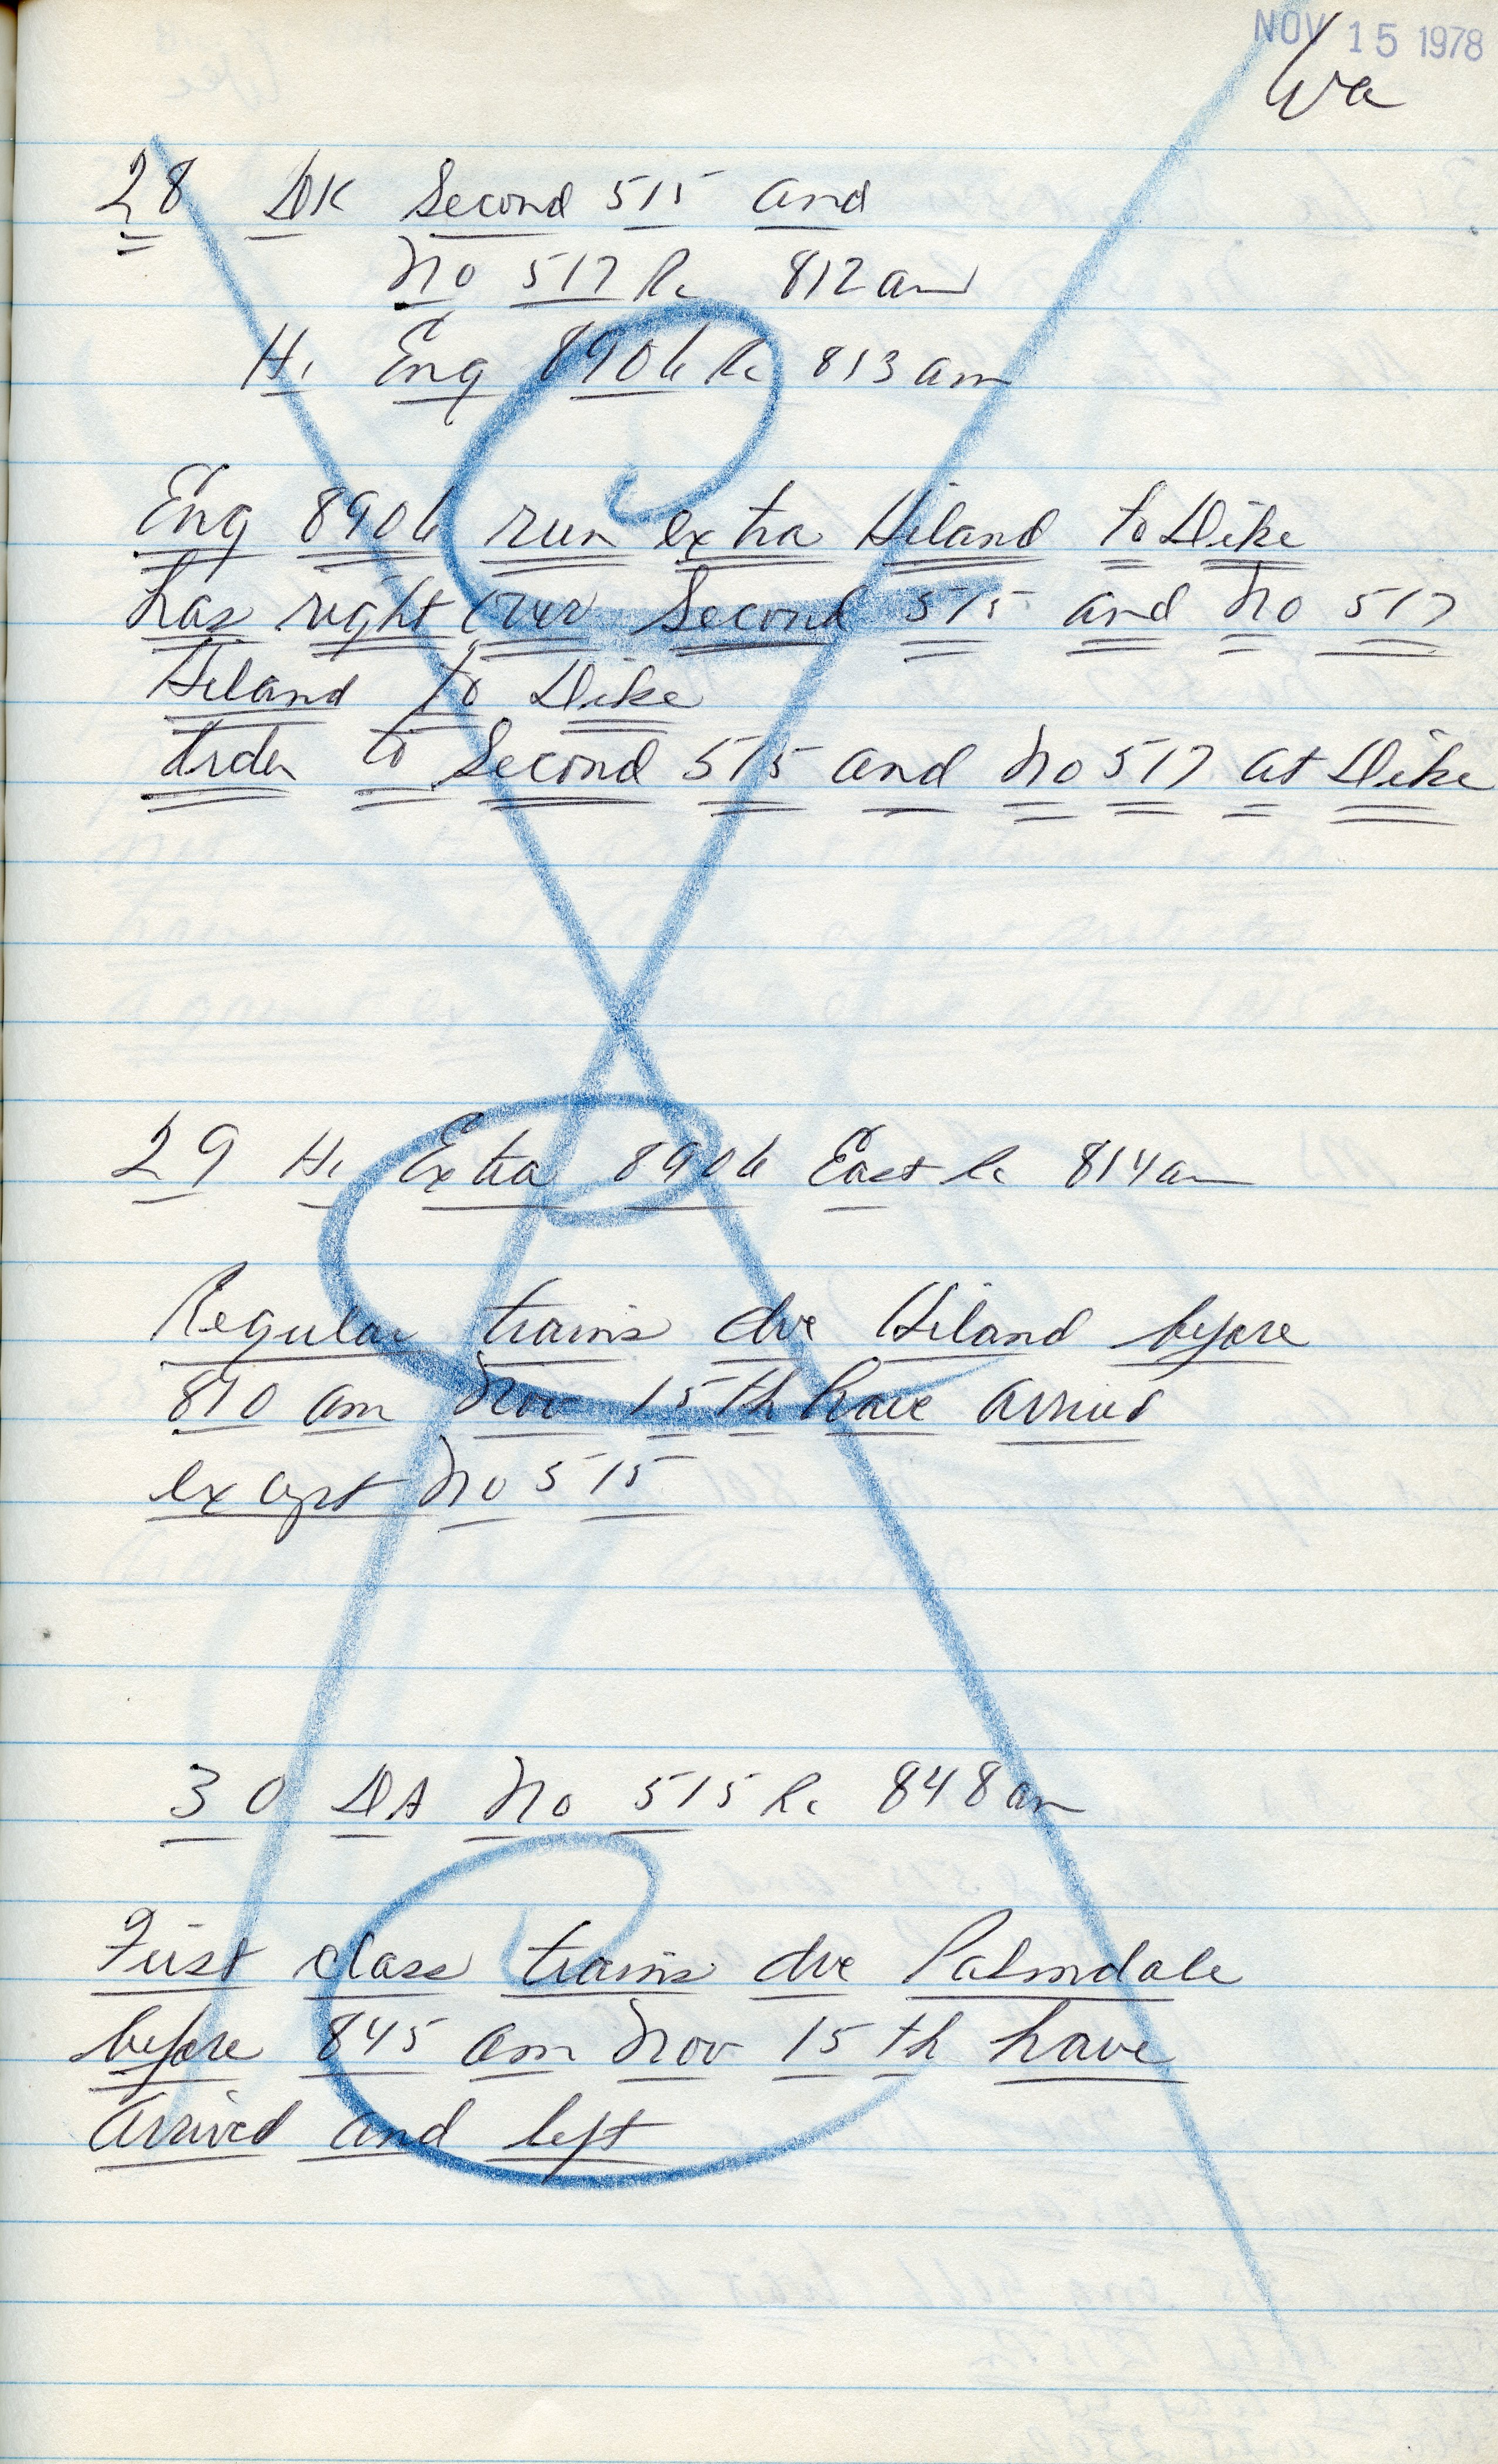 NOV 15 1978
28 DK Second 515 and
No 517 Rc 812 am
Hi Eng 8906 Rc 813 am
Eng 8906 run extra Hiland to Dike
has right over Second 515 and No 517
Hiland to Dike
Order to Second 515 and No 517 at Dike
29 Hi Extra 8906 East Rc 814 am
Regular trains due Hiland before
810 am Nov 15th have arrived
except No 515
30 DA No 515 Rc 848 am
First class trains due Palmdale
before 845 am Nov 15th have
arrived and left